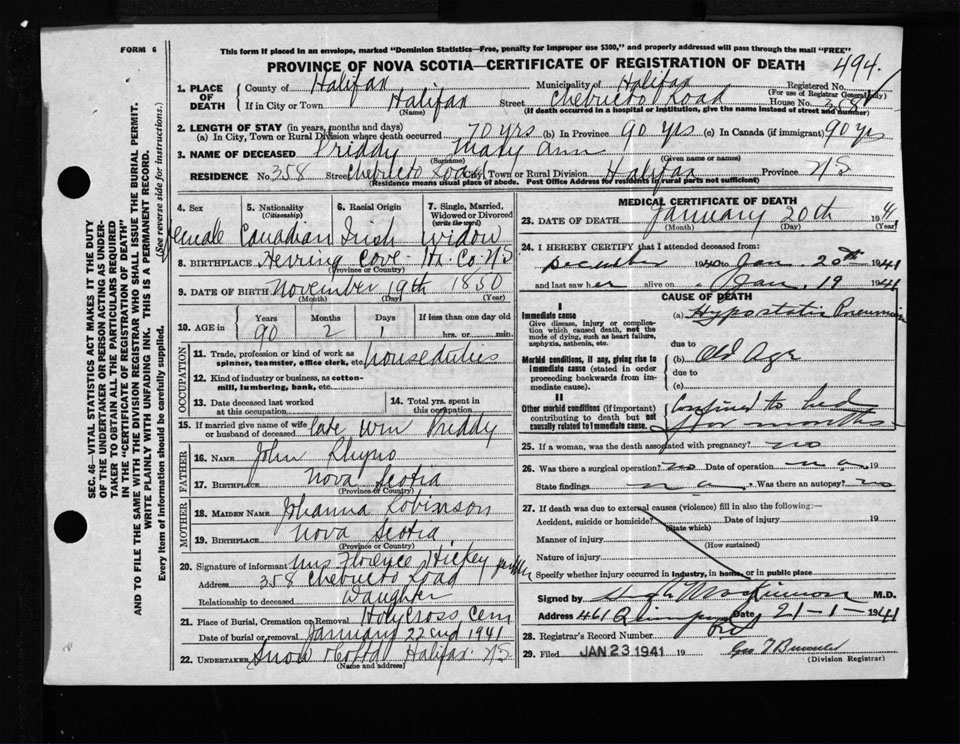 FORM 6
This form if placed in an envelope, marked "Dominion Statistics—Free, penalty for improper use $300," and properly addressed will pass through the mail "FREE"
PROVINCE OF NOVA SCOTIA—CERTIFICATE OF REGISTRATION OF DEATH
494.
1. PLACE OF DEATH
County of Halifax Municipality of Halifax Registered No.
(For use of Registrar General only)
If in City or Town Halifax Street Chebucto Road House No. 358
(Name) (If death occurred in a hospital or institution, give the name instead of street and number)
2. LENGTH OF STAY (in years, months and days)
(a) In City, Town or Rural Division where death occurred 70 yrs (b) In Province 90 yrs (c) In Canada (if immigrant) 90 yrs
3. NAME OF DECEASED Priddy Mary Ann
(Surname) (Given name or names)
RESIDENCE No. 358 Street Chebucto Road City, Town or Rural Division Halifax Province N S
(Residence means usual place of abode. Post Office Address for residents in rural parts not sufficient)
4. Sex
5. Nationality (Citizenship)
6. Racial Origin
7. Single, Married, Widowed or Divorced (write the word)
Female Canadian Irish Widow
8. BIRTHPLACE Herring Cove Hx. Co. N S
(Province or Country)
9. DATE OF BIRTH November 19th 1850
(Month) (Day) (Year)
10. AGE in
Years Months Days If less than one day
90 2 1 hrs. or min.
OCCUPATION
11. Trade, profession or kind of work as spinner, teamster, office clerk, etc. house duties
12. Kind of industry or business, as cotton-mill, lumbering, bank, etc.
13. Date deceased last worked at this occupation
14. Total yrs. spent in this occupation
15. If married give name of wife or husband of deceased late Wm Priddy
FATHER
16. NAME John Rhyno
17. BIRTHPLACE Nova Scotia
(Province or Country)
MOTHER
18. MAIDEN NAME Johanna Robinson
19. BIRTHPLACE Nova Scotia
(Province or Country)
20. Signature of informant Mrs Florence Hickey
Address 358 Chebucto Road
Relationship to deceased Daughter
21. Place of Burial, Cremation or Removal Holy Cross Cem
Date of burial or removal January 22nd 1941
22. UNDERTAKER Snow & Co Ltd Halifax N S
(Name and address)
MEDICAL CERTIFICATE OF DEATH
23. DATE OF DEATH January 20th 1941
(Month) (Day)
24. I HEREBY CERTIFY that I attended deceased from:
December 1940 to Jan. 20th 1941
and last saw her alive on Jan. 19 1941
CAUSE OF DEATH
I
Immediate cause
Give disease, injury or complication which caused death, not the mode of dying, such as heart failure, asphyxia, asthenia, etc.
(a) Hypostatic Pneumonia
due to
Morbid conditions, if any, giving rise to immediate cause (stated in order proceeding backwards from immediate cause).
(b) Old Age
due to
(c)
II
Other morbid conditions (if important) contributing to death but not causally related to immediate cause.
Confined to bed
for months
25. If a woman, was the death associated with pregnancy? no
26. Was there a surgical operation? no Date of operation n.a. 19
State findings n.a. Was there an autopsy? no
27. If death was due to external causes (violence) fill in also the following:—
Accident, suicide or homicide? Date of injury 19
(State which)
Manner of injury
(How sustained)
Nature of injury
Specify whether injury occurred in industry, in home, or in public place
Signed by MacKinnon M.D.
Address 461 Quinpool Rd Date 21-1-1941
28. Registrar's Record Number
29. Filed JAN 23 1941 19
(Division Registrar)
SEC. 46—VITAL STATISTICS ACT MAKES IT THE DUTY OF THE UNDERTAKER OR PERSON ACTING AS UNDERTAKER TO OBTAIN ALL THE PARTICULARS REQUIRED IN THE "CERTIFICATE OF REGISTRATION OF DEATH" AND TO FILE THE SAME WITH THE DIVISION REGISTRAR WHO SHALL ISSUE THE BURIAL PERMIT.
WRITE PLAINLY WITH UNFADING INK. THIS IS A PERMANENT RECORD.
Every item of information should be carefully supplied. (See reverse side for instructions.)